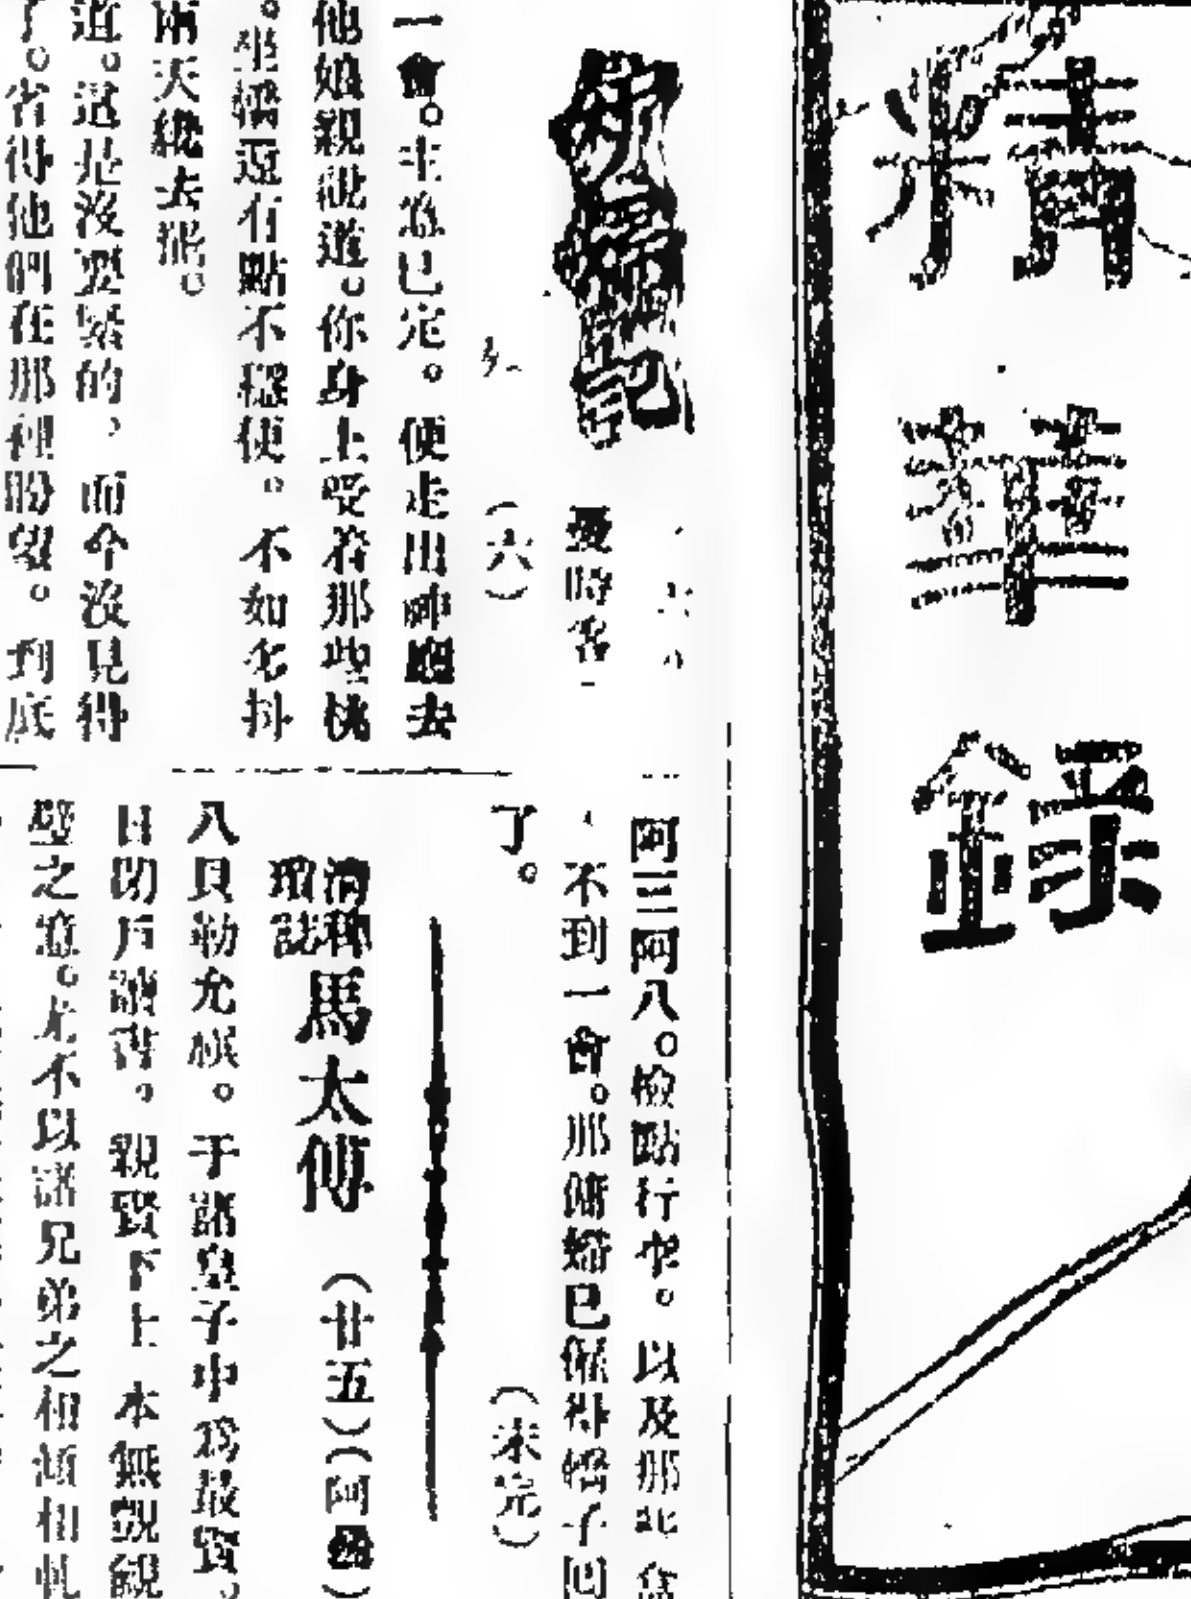 精華錄
婦記
憂時客
(六)
一會。主意已定。便走出神廟去
他娘親說道。你身上受着那些桃
。坐轎還有點不穩便。不如多抖
兩天纔去罷。
道。這是沒要緊的,而今沒見得
了。省得他們在那裡盼望。到底
阿三阿八。檢點行李。以及那些
不到一會。那傭婦已僱得轎子回
了。
(未完)
清稗
瑣誌
馬太傅
(廿五)(阿
八貝勒允禩。于諸皇子中爲最賢。
日閉戶讀書。親賢下士 本無覬覦
之意。尤不以諸兄弟之相傾相軋